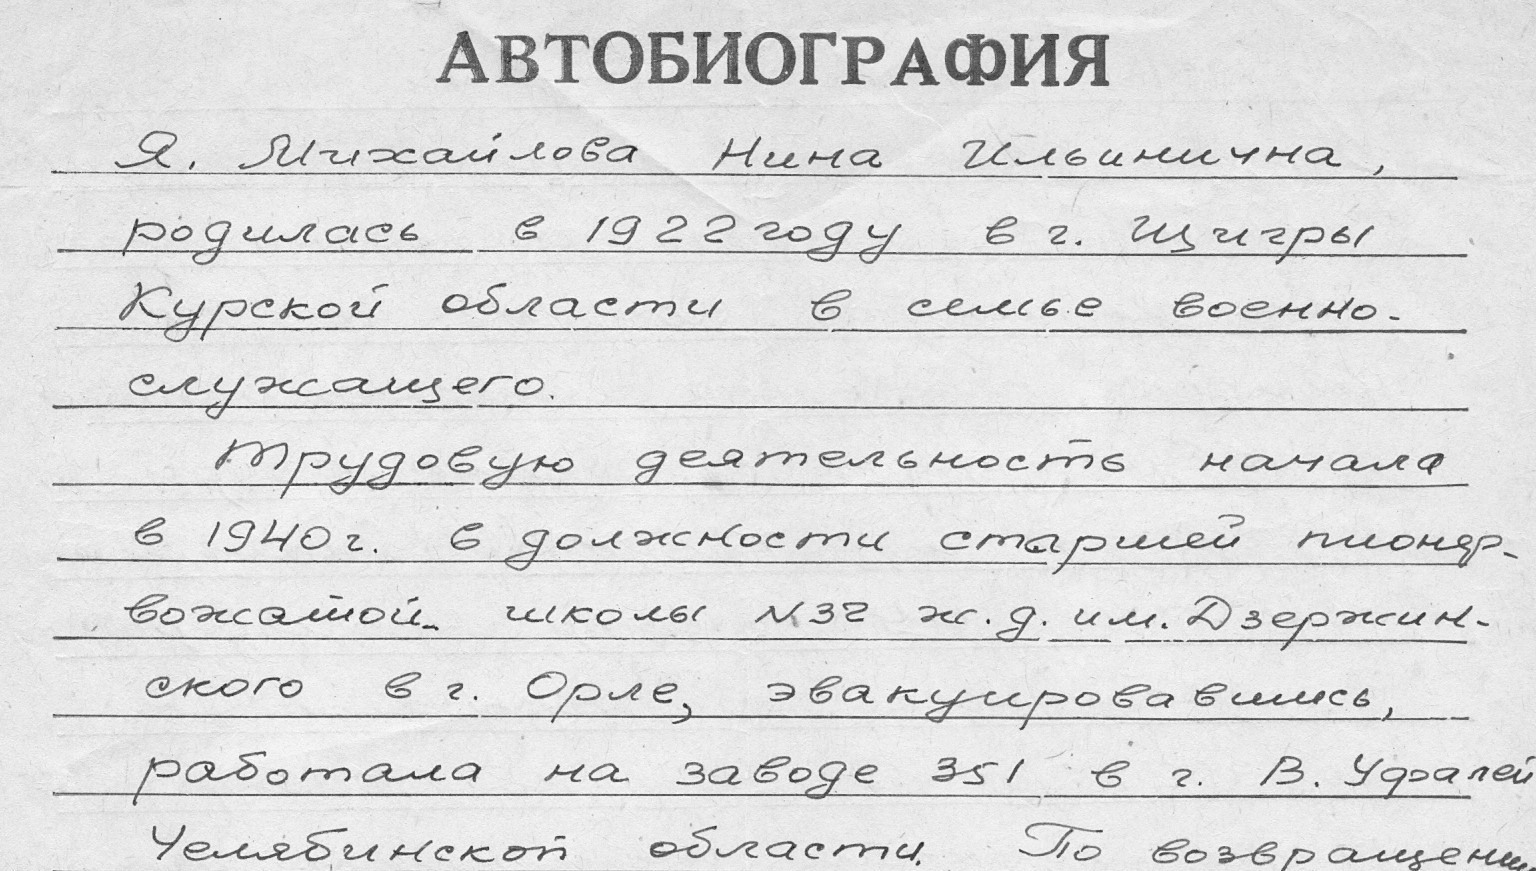 АВТОБИОГРАФИЯ
Я, Михайлова Нина Ильинична,
родилась в 1922 году в г. Щигры
Курской области в семье военно-
служащего.
Трудовую деятельность начала
в 1940 г. в должности старшей пионер-
вожатой школы №32 ж.д. им. Дзержин-
ского в г. Орле, эвакуировавшись,
работала на заводе 351 в г. В. Уфалей
Челябинской области. По возвращении